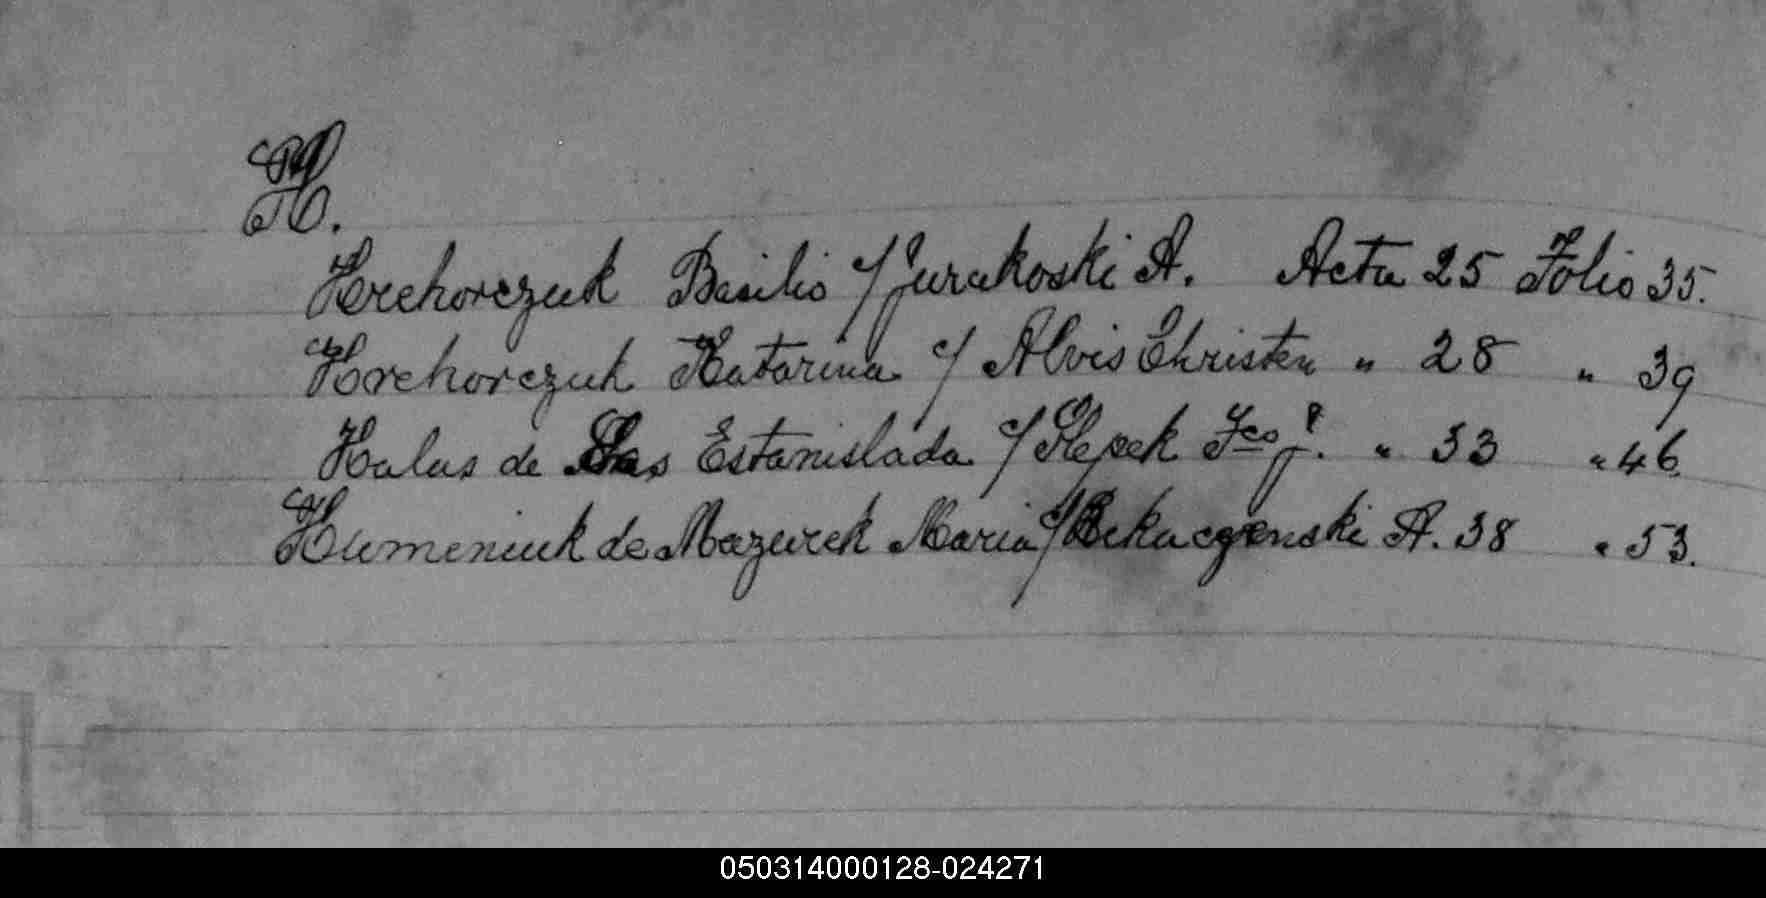 H.
Hrehorczuk Basilio c/ Jurakoski A. Acta 25 Folio 35.
Hrehorczuk Katarina c/ Alvis Christen " 28 " 39
Halas de Sas Estanislada c/ Slepek Fco J. " 33 " 46.
Humeniuk de Mazurek Maria c/ A. 38 " 53.
050314000128-024271